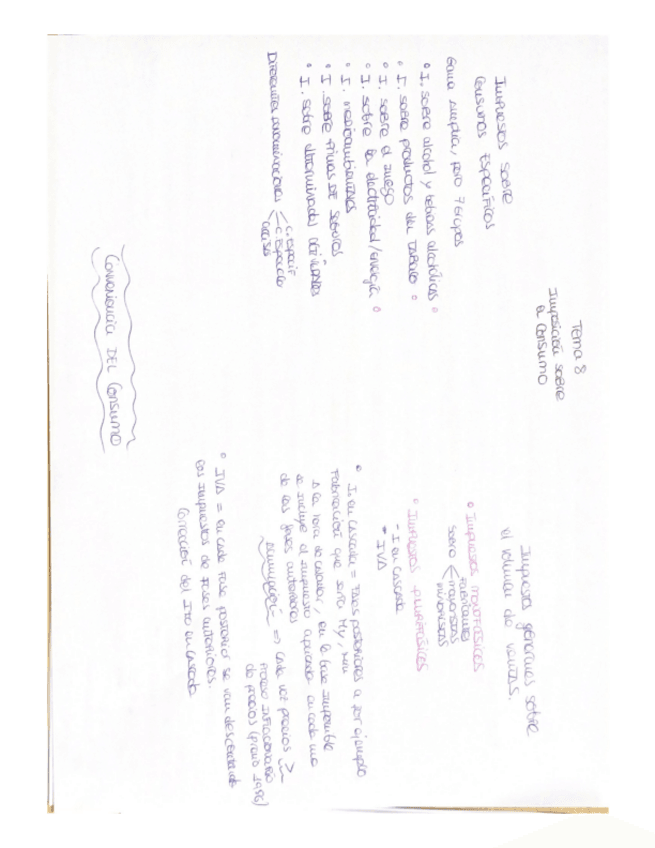 Tema 8
Imposición sobre
el Consumo
Impuestos sobre
Consumos Específicos
Gama amplia, pero 7 grupos
• I. sobre alcohol y bebidas alcohólicas •
• I. sobre productos del tabaco •
• I. sobre el juego
• I. sobre la electricidad/energía •
• I. medioambientales
• I. sobre Primas de Seguros
• I. sobre determinados
Diferentes
Impuestos generales sobre
el volumen de ventas.
• Impuestos monofásicos
sobre < fabricantes
mayoristas
minoristas
• Impuestos plurifásicos
- I en cascada
- IVA
• I. en cascada = fases posteriores a por ejemplo
Fabricación que sería
A la hora de calcular, en la base imponible
se incluye el impuesto aplicado en cada una
de las fases anteriores
=> cada vez precios >
proceso inflacionario
de precios (previo 1986)
• IVA = en cada fase posterior se van descontando
los impuestos de fases anteriores.
Corrección del Ito en cascada
Conveniencia DEL Consumo